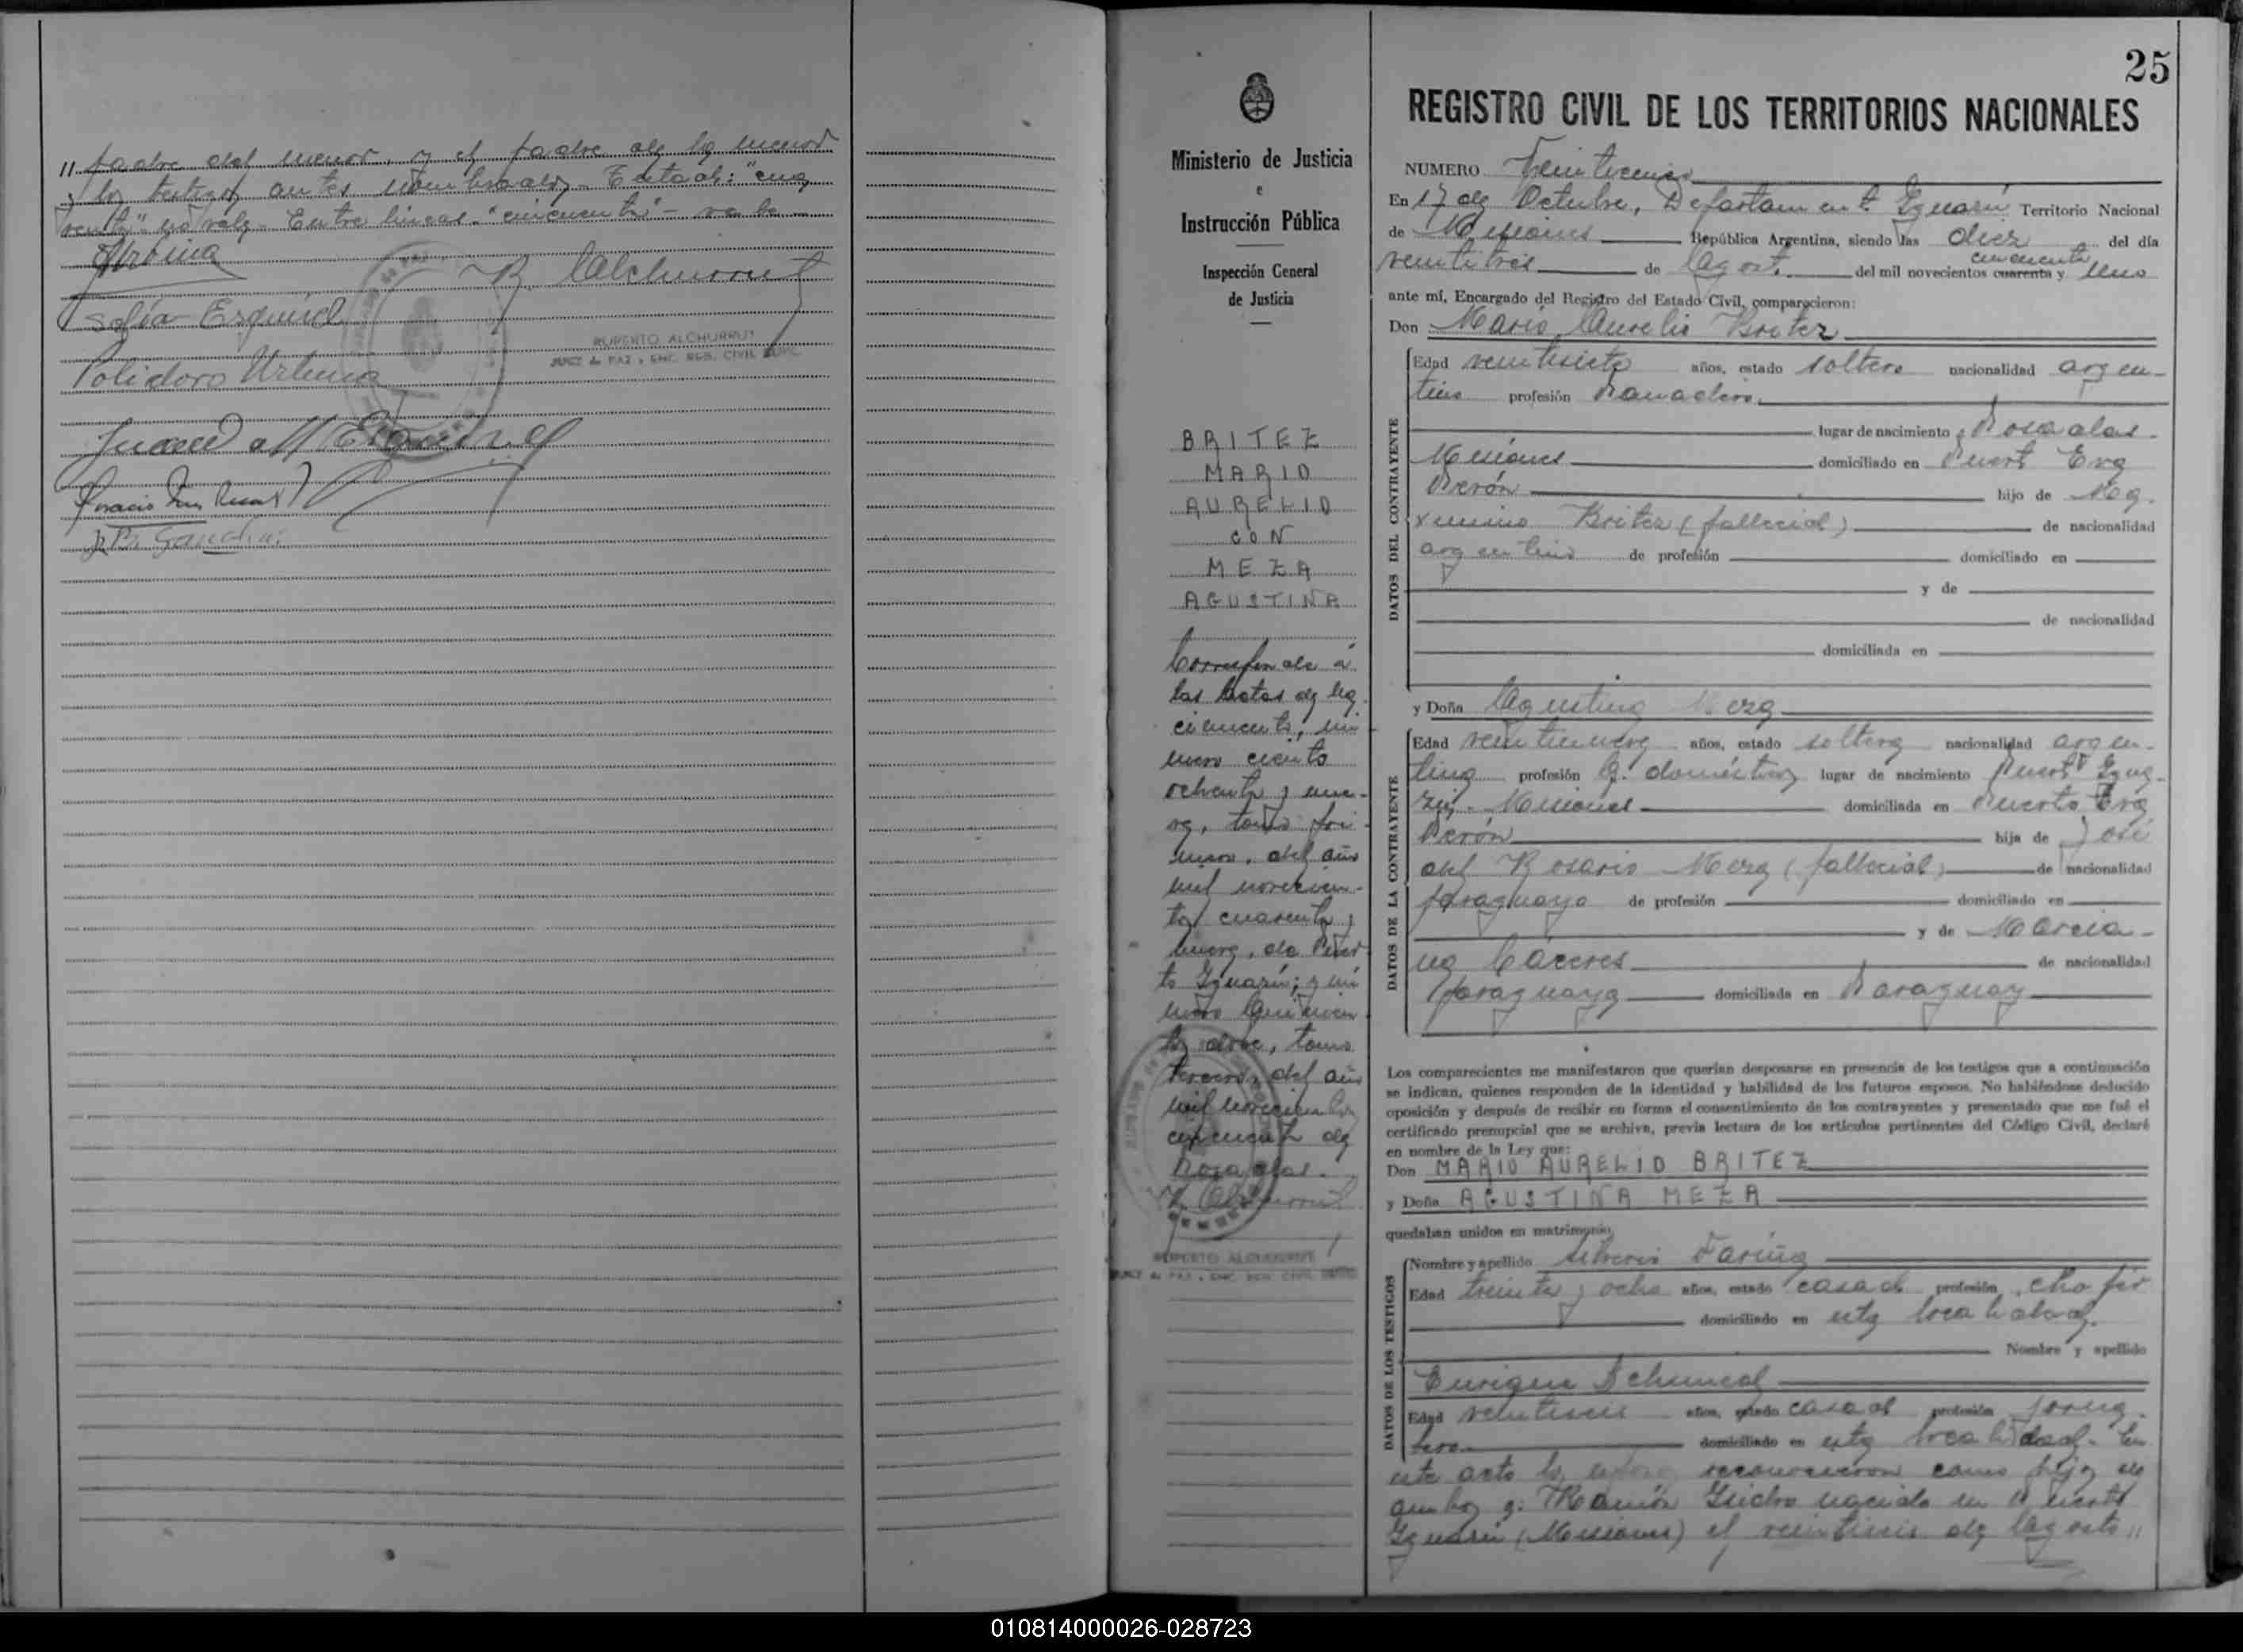 " padre del menor, y el padre de la menor
y los testigos antes nombrados. Testado: "cua
renta" no vale. Entre líneas "cincuenta" - vale
Urbina
R. Alchurrut
Sofía Esquivel
RUPERTO ALCHURRUT
JUEZ de PAZ y ENC. REG. CIVIL
Polidoro Urbina
Juan Esquivel
25
Ministerio de Justicia
e
Instrucción Pública
Inspección General
de Justicia
BRITEZ
MARIO
AURELIO
CON
MEZA
AGUSTINA
Corresponde a
las actas de na
cimiento, nú
mero ciento
ochenta y nue-
ve, tomo pri
mero, del año
mil novecien-
tos cuarenta y
nueve, de Puer
to Iguazú; y nú
mero quinien
tos doce, tomo
tercero, del año
mil novecientos
cincuenta de
Posadas.
R. Alchurrut
RUPERTO ALCHURRUT
JUEZ de PAZ y ENC. REG. CIVIL
REGISTRO CIVIL DE LOS TERRITORIOS NACIONALES
NUMERO Veinticinco
En 17 de Octubre, Departamento Iguazú Territorio Nacional
de Misiones República Argentina, siendo las diez del día
cincuenta
veintitrés de Agosto del mil novecientos cuarenta y uno
ante mí, Encargado del Registro del Estado Civil, comparecieron:
Don Mario Aurelio Britez
DATOS DEL CONTRAYENTE
Edad veintisiete años, estado soltero nacionalidad argen-
tino profesión Panadero
lugar de nacimiento Posadas-
Misiones domiciliado en Puerto Eva
Perón hijo de Má
ximino Britez (fallecido) de nacionalidad
argentino de profesión domiciliado en
y de
de nacionalidad
domiciliada en
y Doña Agustina Meza
DATOS DE LA CONTRAYENTE
Edad veintinueve años, estado soltera nacionalidad argen-
tina profesión Q. doméstica lugar de nacimiento Puerto Igua-
zú - Misiones domiciliada en Puerto Eva
Perón hija de José
del Rosario Meza (fallecido) de nacionalidad
paraguayo de profesión domiciliado en
y de Marcia-
na Cáceres de nacionalidad
paraguaya domiciliada en Paraguay
Los comparecientes me manifestaron que querían desposarse en presencia de los testigos que a continuación
se indican, quienes responden de la identidad y habilidad de los futuros esposos. No habiéndose deducido
oposición y después de recibir en forma el consentimiento de los contrayentes y presentado que me fué el
certificado prenupcial que se archiva, previa lectura de los artículos pertinentes del Código Civil, declaré
en nombre de la Ley que:
Don MARIO AURELIO BRITEZ
y Doña AGUSTINA MEZA
quedaban unidos en matrimonio.
DATOS DE LOS TESTIGOS
Nombre y apellido Silverio Fariña
Edad treinta y ocho años, estado casado profesión chofer
domiciliado en esta localidad.
Nombre y apellido
Enrique
Edad veintiseis años, estado casado profesión jorna-
lero domiciliado en esta localidad. En
este acto los esposos reconocieron como hijo de
ambos a: Ramón Isidro nacido en Puerto
Iguazú (Misiones) el veintiseis de Agosto "
010814000026-028723